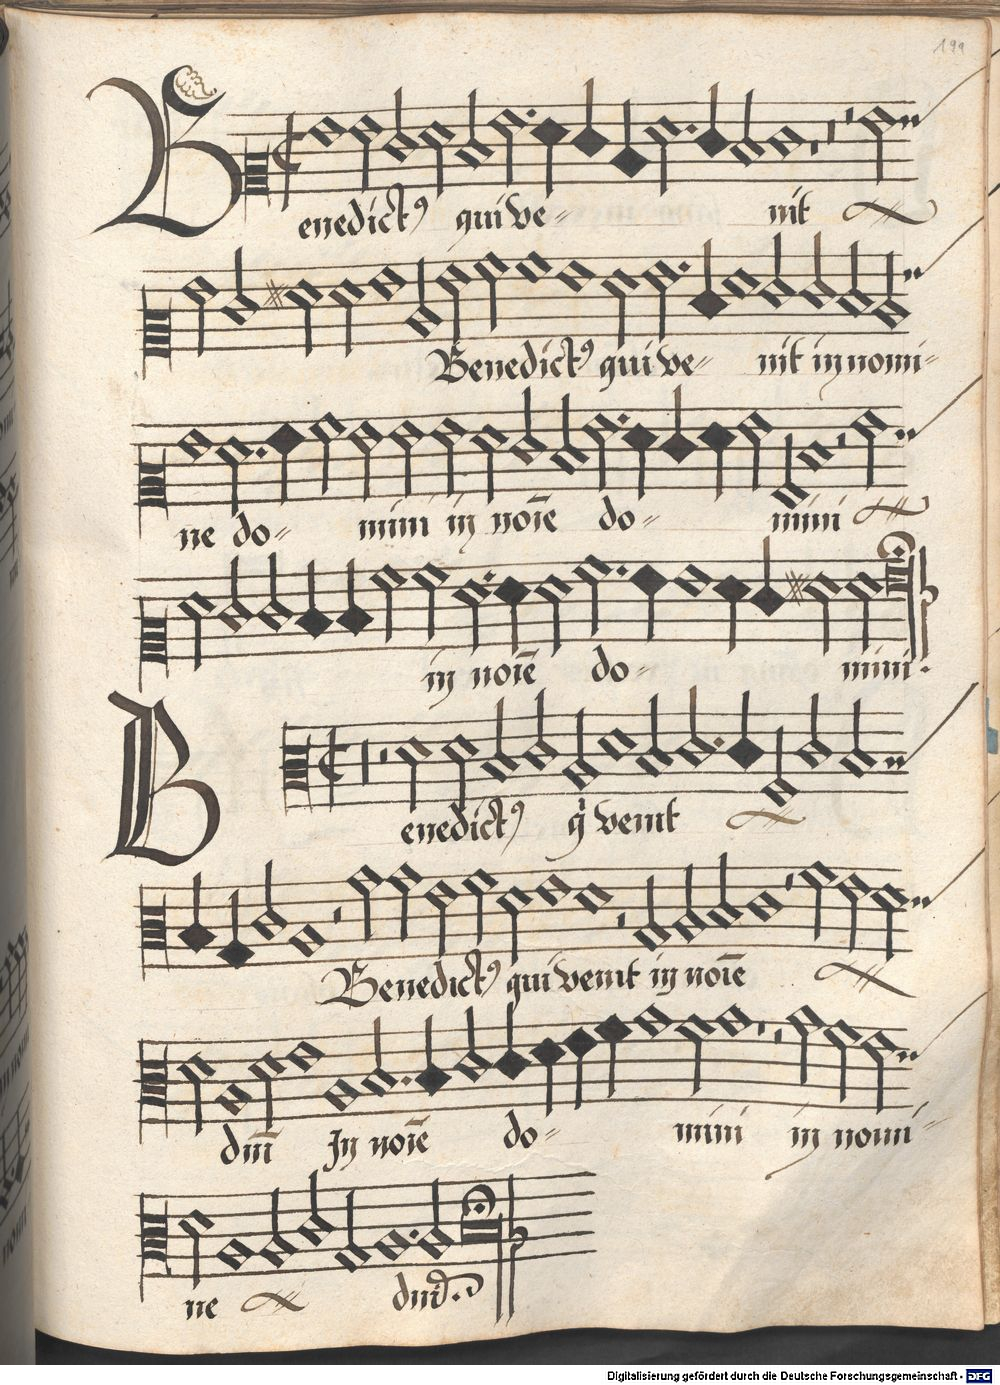 199
Benedictꝰ qui ve- nit
Benedictꝰ qui ve- nit in nomi-
ne do- mini in noīe do- mini
in noīe do- mini.
Benedictꝰ q̇ venit
Benedictꝰ qui venit in noīe
dm̄i In noīe do- mini in nomi-
ne
Digitalisierung gefördert durch die Deutsche Forschungsgemeinschaft - DFG